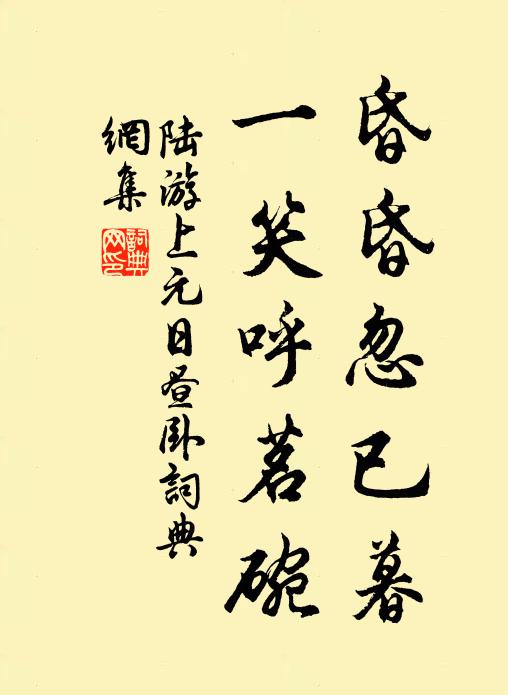 昏昏忽已暮
一笑呼茗碗
陆游上元日昼卧詞典
網集
詞典网印